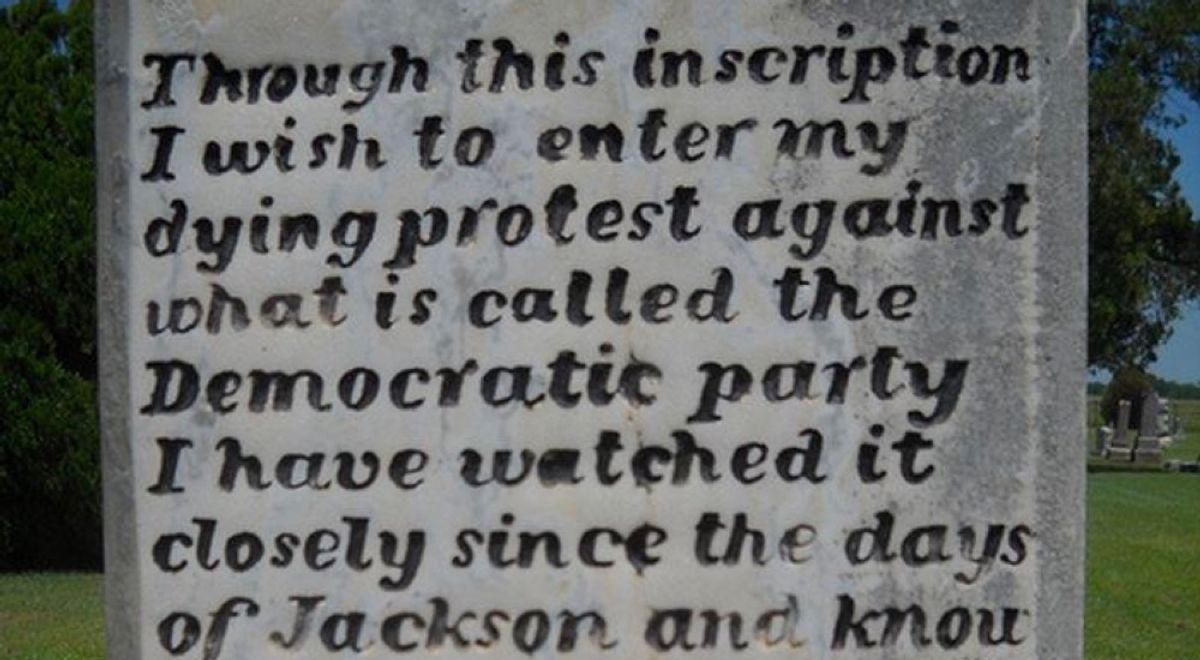 Through this inscription
I wish to enter my
dying protest against
what is called the
Democratic party
I have watched it
closely since the days
of Jackson and know